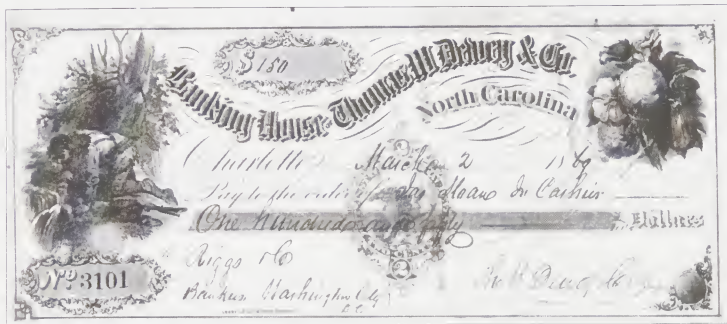 $150
Banking House Thomas W. Dewey & Co.
North Carolina
Charlotte March 2 1869
Pay to the order Sloane Cashier
One hundred and fifty Dollars
Riggs & Co
No 3101
Bankers Washington City
D.C.